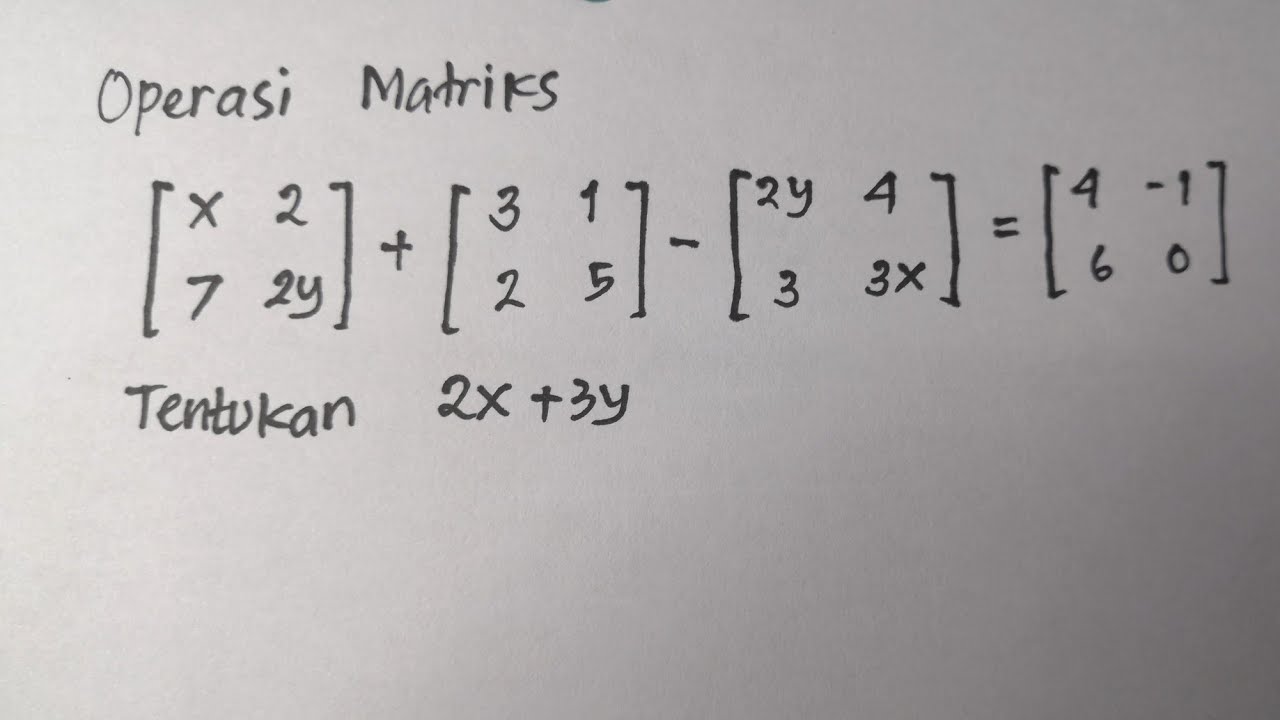 Operasi Matriks
[x 2 7 2y] + [3 1 2 5] - [2y 4 3 3x] = [4 -1 6 0]
Tentukan 2x + 3y